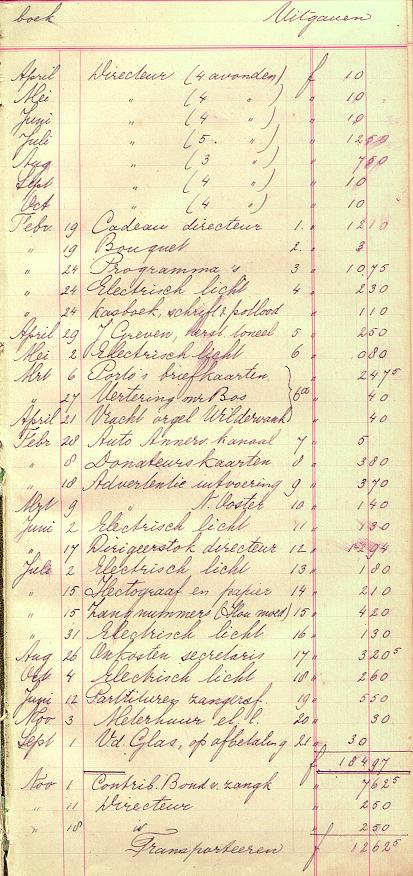 boek Uitgaven
April Directeur (4 avonden) f 10
Mei " (4 " ) " 10
Juni " (4 " ) " 10
Juli " (5. " ) " 12 50
Aug " (3 " ) " 7 50
Sept " (4 " ) " 10
Oct " (4 " ) " 10
Febr. 19 Cadeau directeur 1. " 12 10
" 19 Bouquet 2. " 3
" 24 Programma's 3 " 10,75
" 24 Electrisch licht 4 " 2 30
" 24 Kasboek, schrift & potlood " 1 10
April 29 J Greven, toneel 5 " 2 50
Mei 2 Electrisch licht 6 " 0 80
Mrt 6 Porto's briefkaarten " 2 47⁵
" 27 Vertering mr Bos 6a " 40
April 21 Vracht orgel Wildervank " 40
Febr 28 Auto Annerv. kanaal 7 " 5
" 8 Donateurskaarten 8 " 3 80
" 18 Advertentie uitvoering 9 " 3 70
Mrt 9 " N. Ooster 10 " 1 40
Juni 2 Electrisch licht 11 " 1 30
" 17 Dirigeerstok directeur 12 " 12 94
Juli 2 Electrisch licht 13 " 1 80
" 15 Hectograaf en papier 14 " 2 10
" 15 Zangnummers (Hou moed) 15 " 4 20
" 31 Electrisch licht 16 " 1 30
Aug 26 Onkosten secretaris 17 " 3 20⁵
Oct 4 Electrisch licht 18 " 2 60
Juni 12 Partituren zangersf. 19 " 5 50
Nov 3 Meterhuur el. l. 20 " 30
Sept 1 Vd. Glas, op afbetaling 21 " 30
f 184 97
Nov 1 Contrib. Bond v. zangk " 7 62⁵
" 11 Directeur " 2 50
" 18 " 2 50
Transporteeren f 12 62⁵